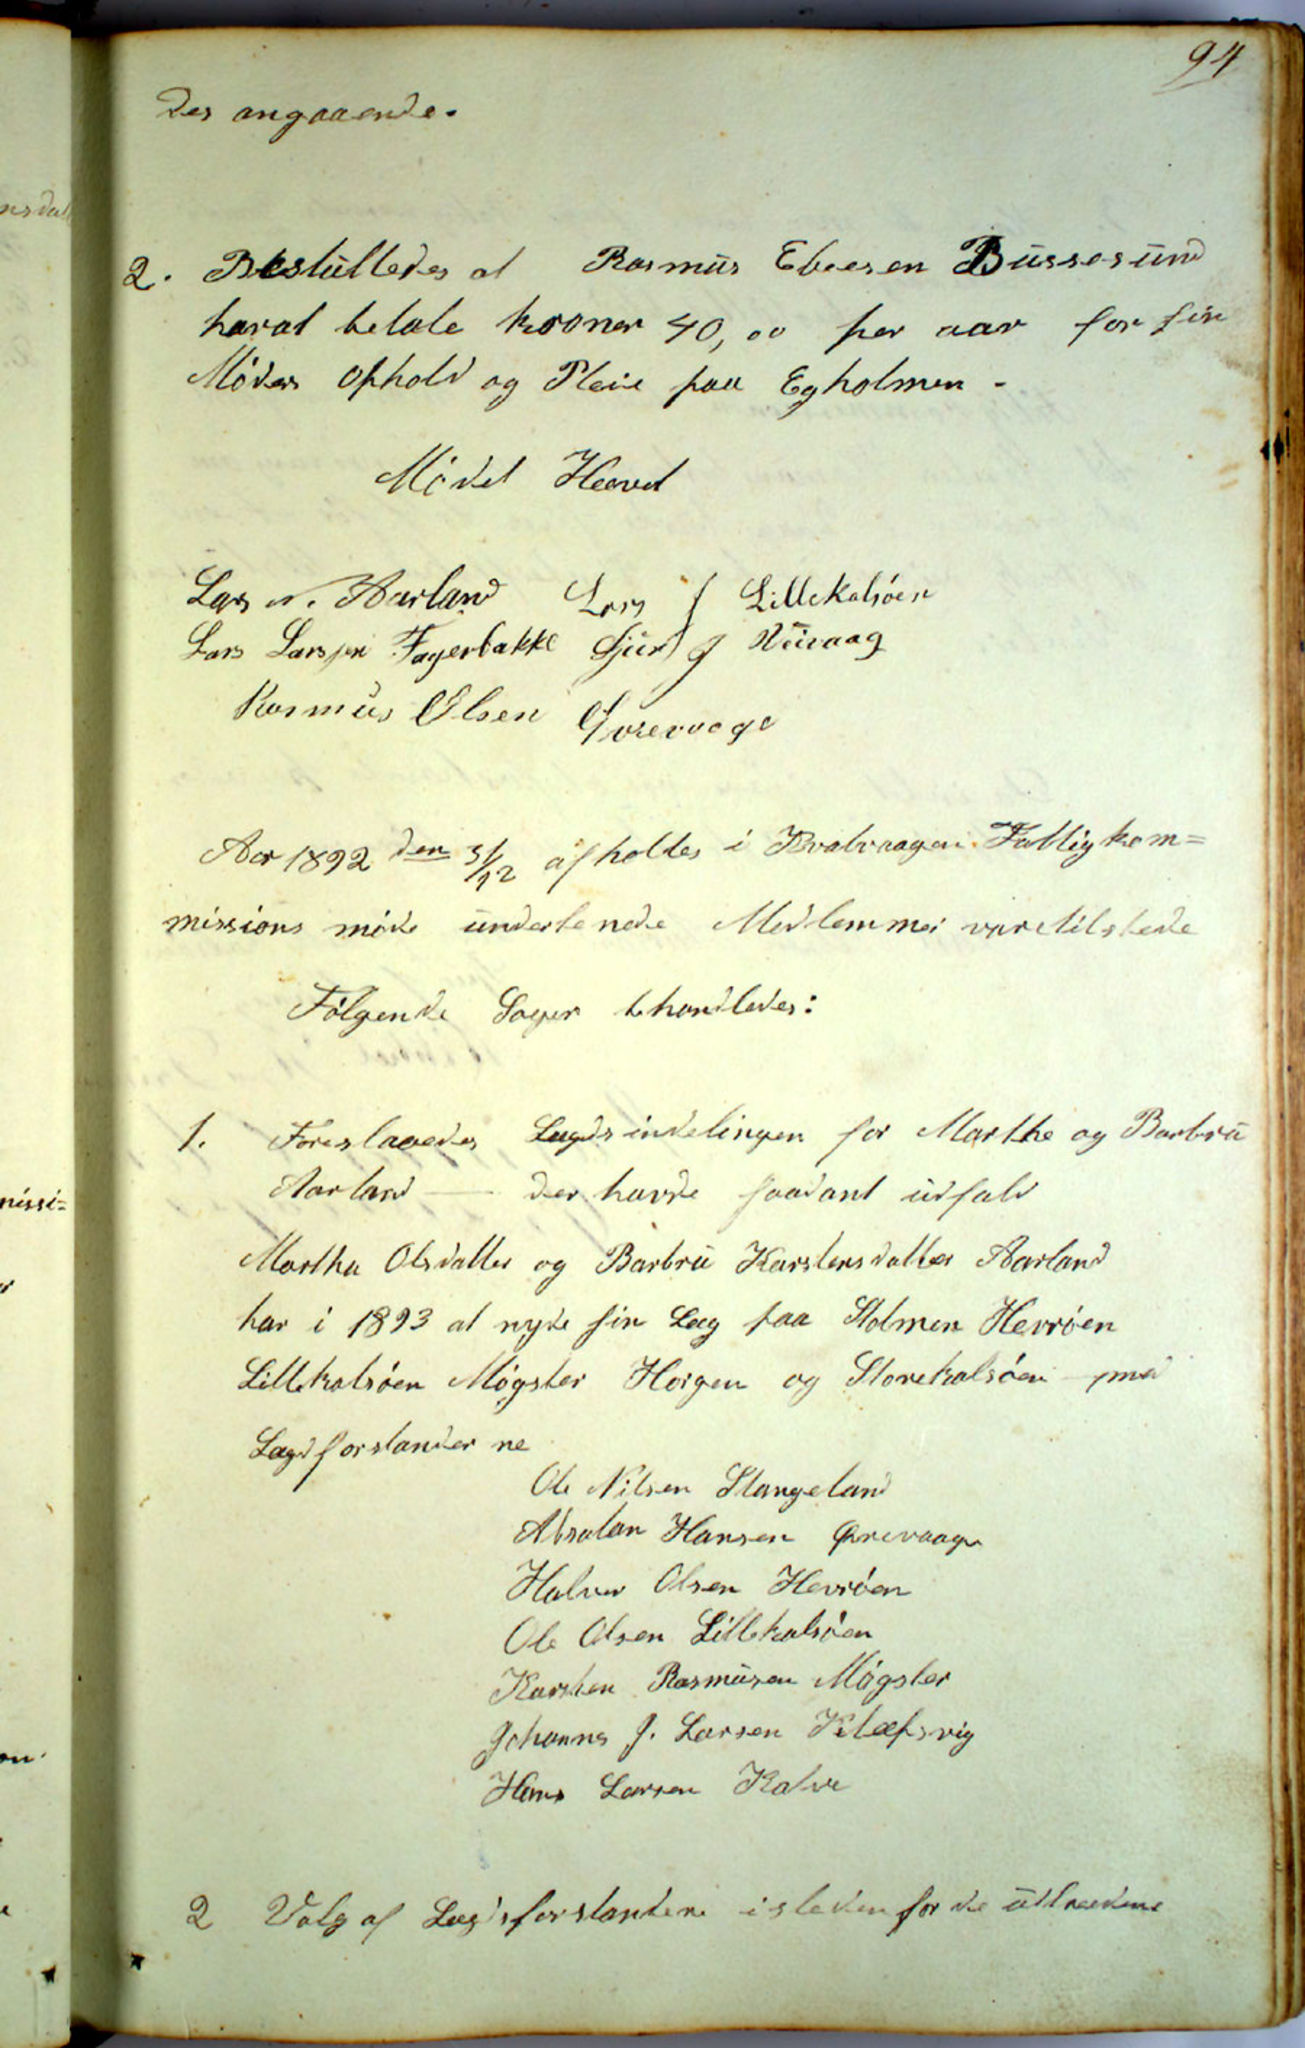 94
des angaaende.
2. Beslutledes at Rasmus Ebeesen Bussesund
harat betale kroner 40,00 per aar for sin
Møders Ophold og Pleie paa Egholmen -
Mødet Hævet
Lars N. Aarland Lars J Lillekalsøen
Lars Larssen Fagerbakke Sjur J Nüvaag
Rasmus Olsen Qvrevaage
Aar 1892 den 31/12 afholdtes i Kvalvaagen Fattigkom=
missions møde undertenede Medlemmer varetilstede
Følgende Sager behandledes:
1. Foreslaaedes Lægdsindelingen for Marthe og Barbru
Aarland - der havde saadant udfald
Martha Olsdatter og Barbru Karstensdatter Aarland
har i 1893 at nyde sin Læg paa Stolmen Hevrøen
Lillekalsøen Møgster Horgen og Storekalsøen med
Lægdforstander ne
Ole Nilsen Stangeland
Absalon Hansen Qvrevaage
Halvor Olsen Hevrøen
Ole Olsen Lillekalsøen
Karsten Rasmusen Møgster
Johannes J. Larsen Klæpsvig
Hans Larsen Kalve
2 Valg af Lægdsforstandere isteden for de udtrædene
nissi=